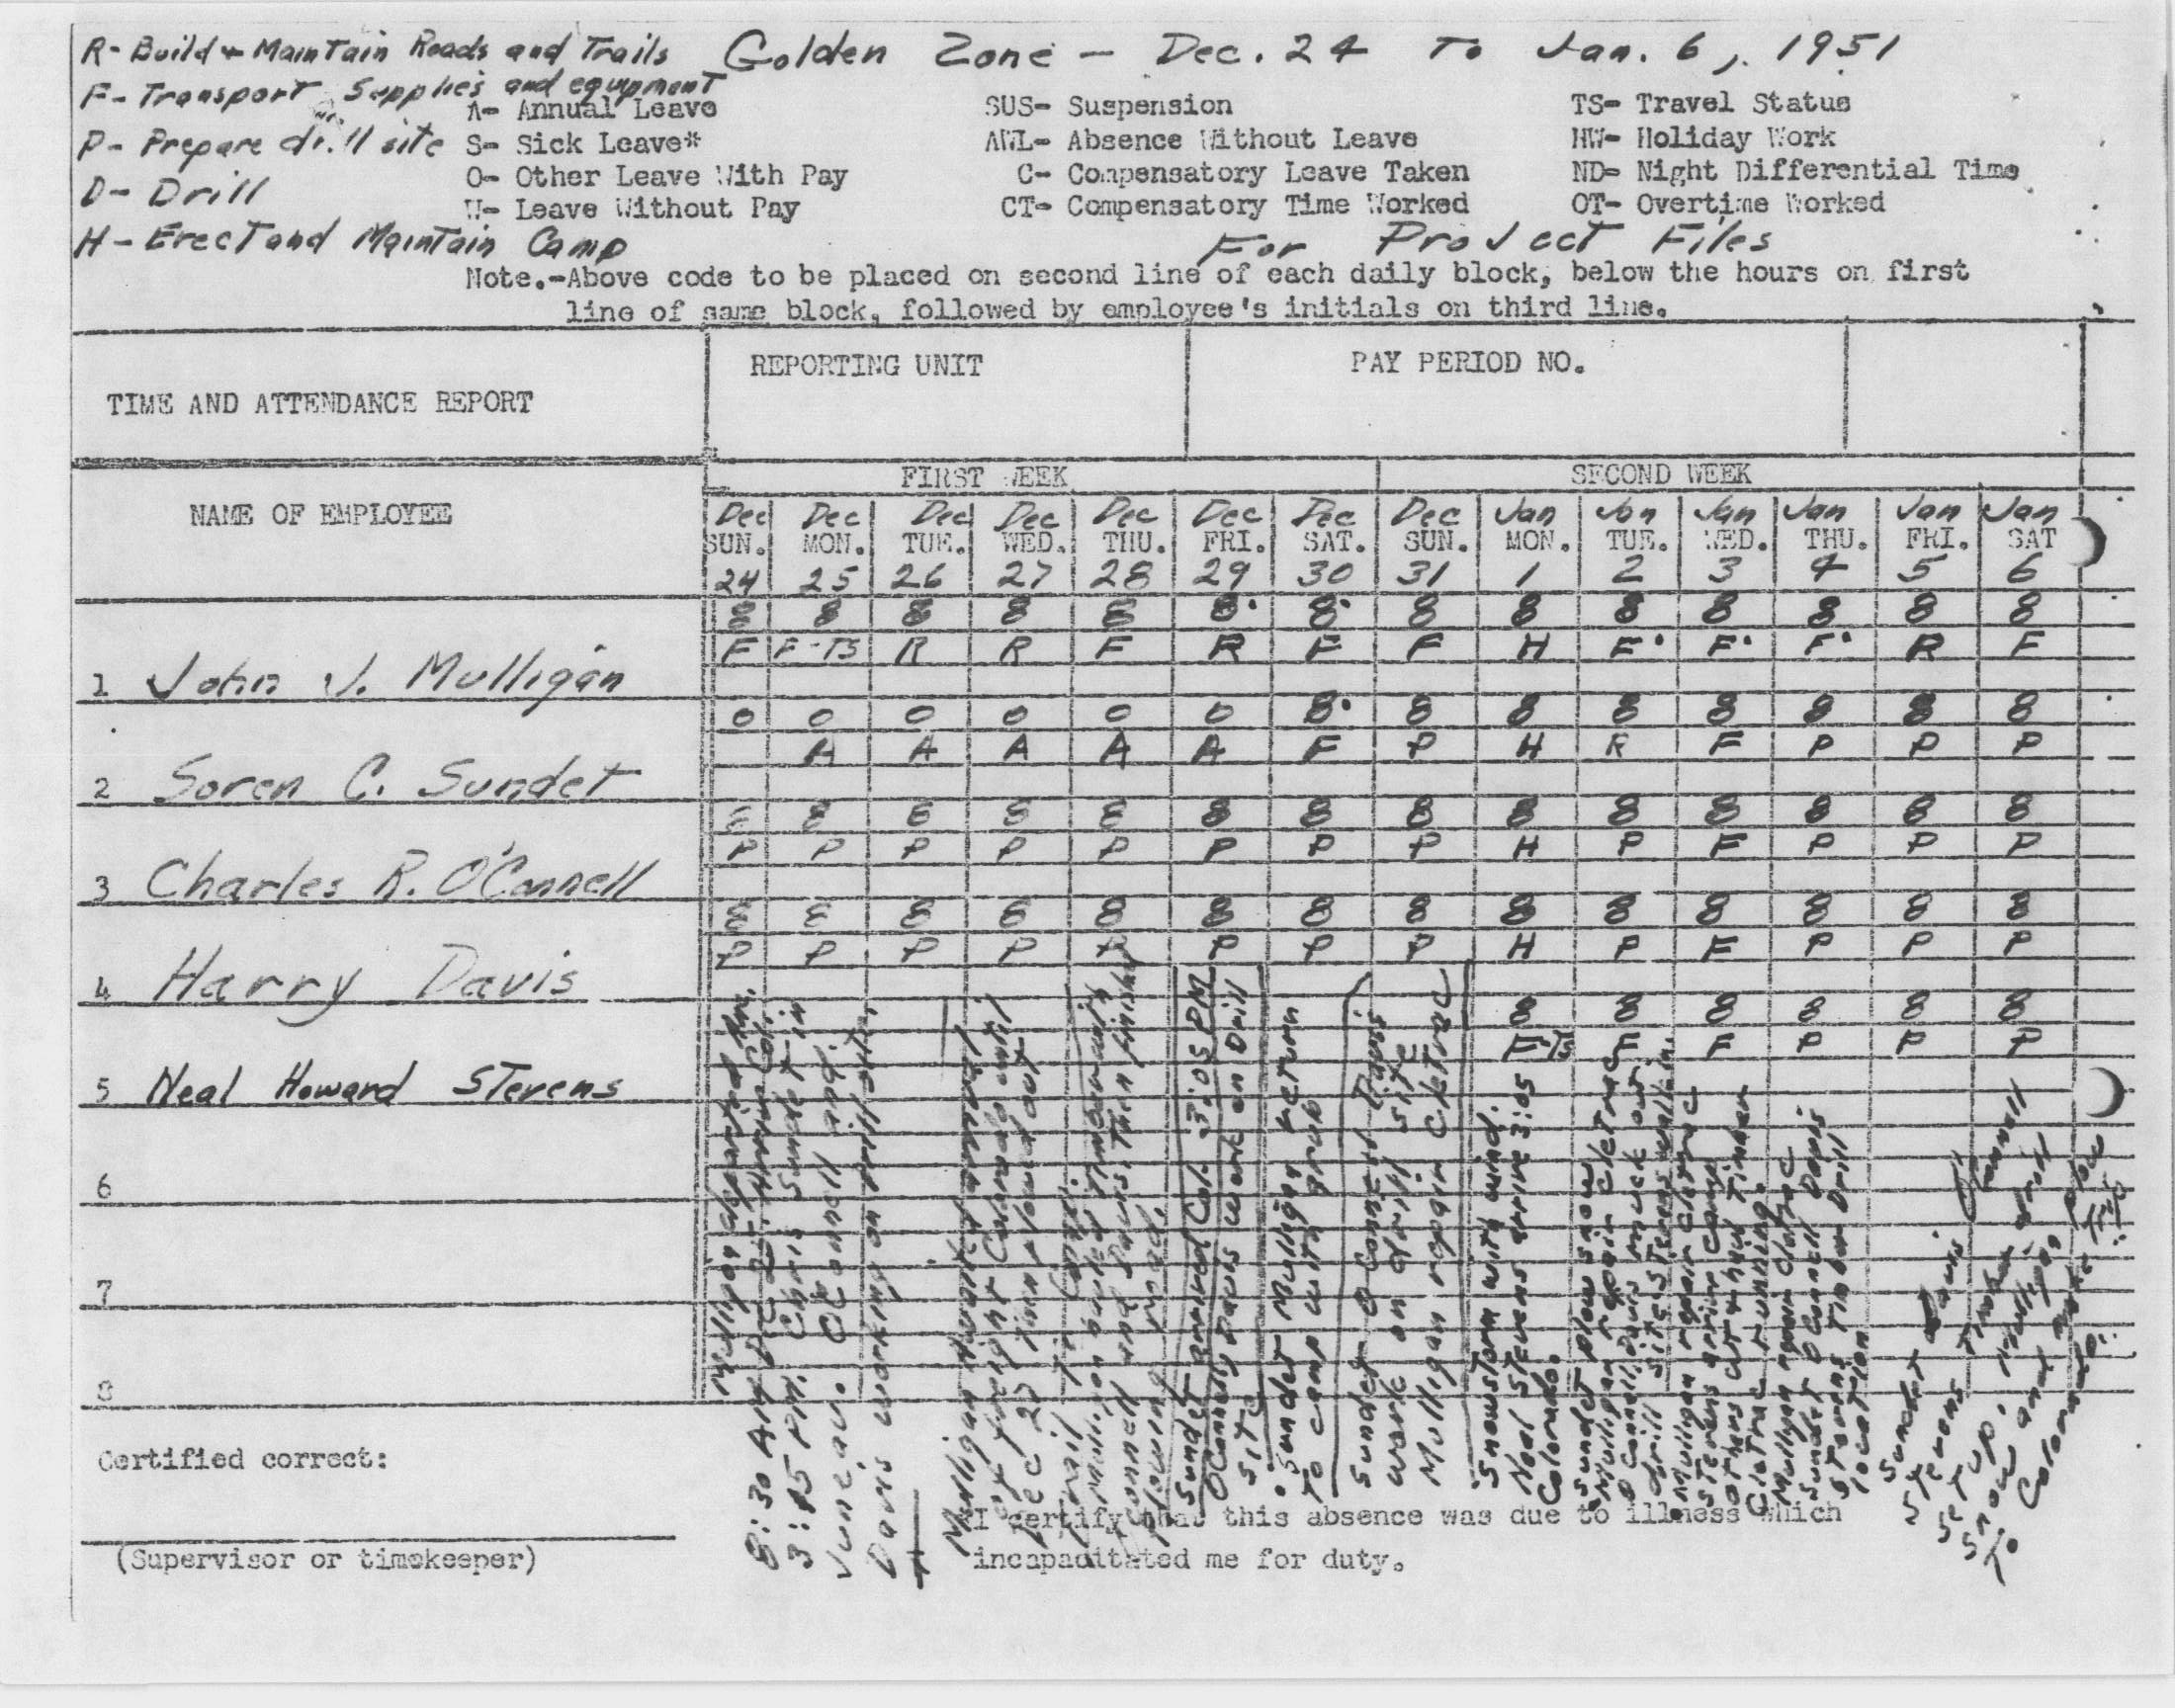 R- Build & Maintain Roads and Trails Golden Zone - Dec. 24 To Jan. 6, 1951
F- Transport Supplies and equipment
A- Annual Leave SUS- Suspension TS- Travel Status
P- Prepare drill site S- Sick Leave* AWL- Absence Without Leave HW- Holiday Work
O- Other Leave With Pay C- Compensatory Leave Taken ND- Night Differential Time
D- Drill
W- Leave Without Pay CT- Compensatory Time Worked OT- Overtime Worked
H- Erect and Maintain Camp For Project Files
Note.-Above code to be placed on second line of each daily block, below the hours on first
line of same block, followed by employee's initials on third line.
REPORTING UNIT PAY PERIOD NO.
TIME AND ATTENDANCE REPORT
FIRST WEEK SECOND WEEK
NAME OF EMPLOYEE Dec Dec Dec Dec Dec Dec Dec Dec Jan Jan Jan Jan Jan Jan
SUN. MON. TUE. WED. THU. FRI. SAT. SUN. MON. TUE. WED. THU. FRI. SAT
24 25 26 27 28 29 30 31 1 2 3 4 5 6
8 8 8 8 8 8 8 8 8 8 8 8 8 8
F F-TS R R F R F F H F F F R F
1 John J. Mulligan
0 0 0 0 0 0 8 8 8 8 8 8 8 8
A A A A A F P H R F P P P
2 Soren C. Sundet
8 8 8 8 8 8 8 8 8 8 8 8 8 8
P P P P P P P P H P F P P P
3 Charles R. O'Connell
8 8 8 8 8 8 8 8 8 8 8 8 8 8
P P P P P P P P H P F P P P
4 Harry Davis
8 8 8 8 8 8
F-TS F F P P P
5 Neal Howard Stevens
6
7
8
Mulligan departed
8:30 AM Dec 25. Arrived Col.
3:15 PM. Chris Sundet in
Juneau. O'Connell and
Davis working on drill site.
Mulligan
of freight Colorado until
Dec 27 then plowed out
Trail to
Mulligan
and Davis. Then finished
plowing road.
Sundet Arrived Col. 3:05 PM
O'Connell, Davis work on Drill
Site
Sundet Mulligan return
to camp with grub
Sundet O'Connell Davis
work on drill site
Mulligan repair Cletrac
Snowstorm with wind.
Neal Stevens arrive 3:05
Colorado.
Sundet plow snow
Mulligan repair Cletrac
O'Connell, Davis muck out
drill site. Stevens walk in.
Mulligan repair cletrac
Stevens arrive camp
others cut & haul Timber
Cletrac running.
Mulligan repair cletrac
Sundet O'Connell Davis
Stevens Timber Drill
location
Sundet Davis O'Connell
Stevens Timber drill
set up. Mulligan plow
snow and
To Colorado.
Certified correct:
I certify that this absence was due to illness which
(Supervisor or timekeeper) incapacitated me for duty.